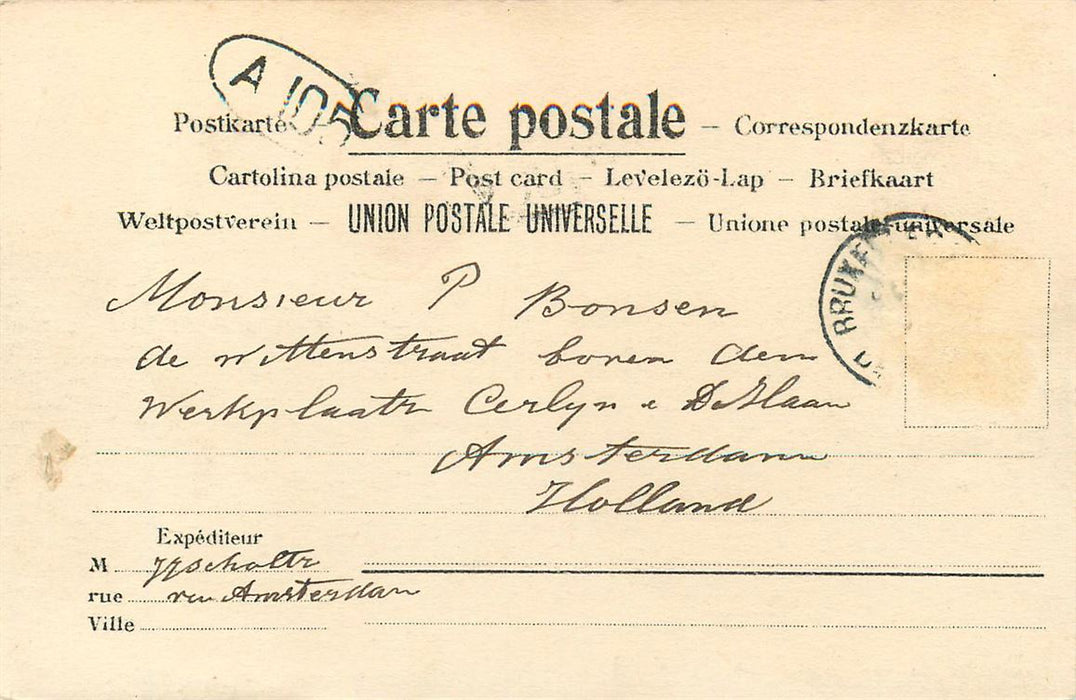 A 105
Postkarte Carte postale – Correspondenzkarte
Cartolina postale – Post card – Levelezö-Lap – Briefkaart
Weltpostverein – UNION POSTALE UNIVERSELLE – Unione postale universale
BRUXE
Monsieur P Bonsen
de Wittenstraat boven den
Werkplaats Cerlyn & De Haan
Amsterdam
Holland
Expéditeur
M
rue Amsterdam
Ville